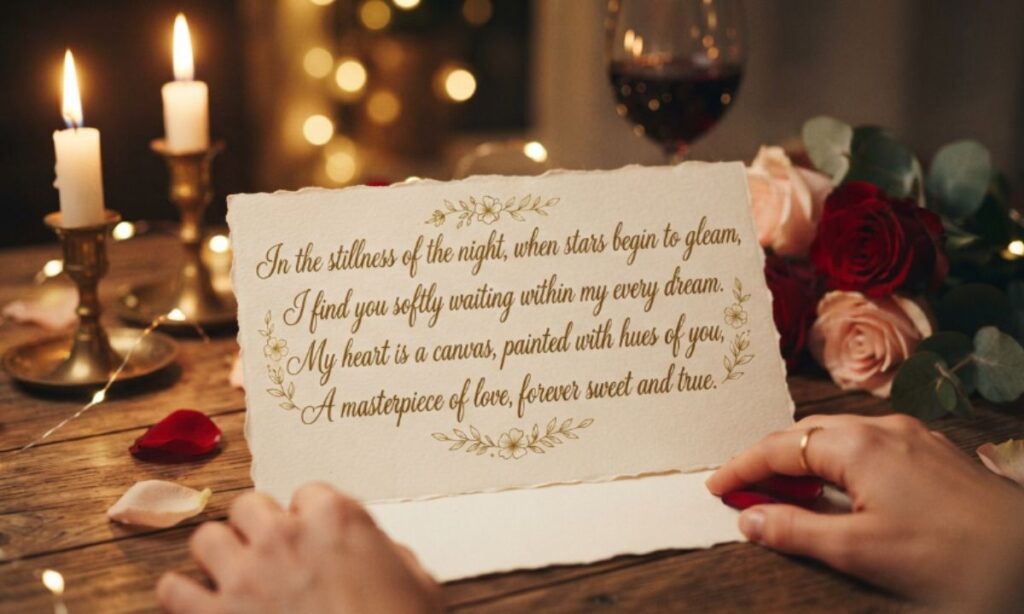 In the stillness of the night, when stars begin to gleam,
I find you softly waiting within my every dream.
My heart is a canvas, painted with hues of you,
A masterpiece of love, forever sweet and true.